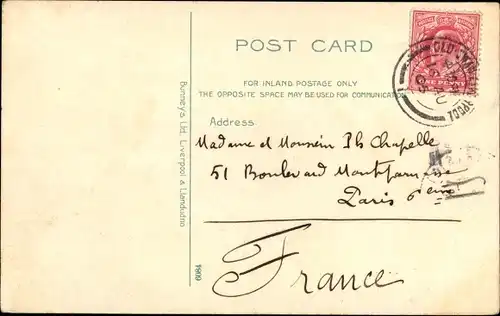 POST CARD
FOR INLAND POSTAGE ONLY
THE OPPOSITE SPACE MAY BE USED FOR COMMUNICATION
Address
Madame et Monsieur Ph Chapelle
51 Boulevard Montparnasse
Paris 6eme
France
Bunney's Ltd. Liverpool & Llandudno
6084
ONE PENNY